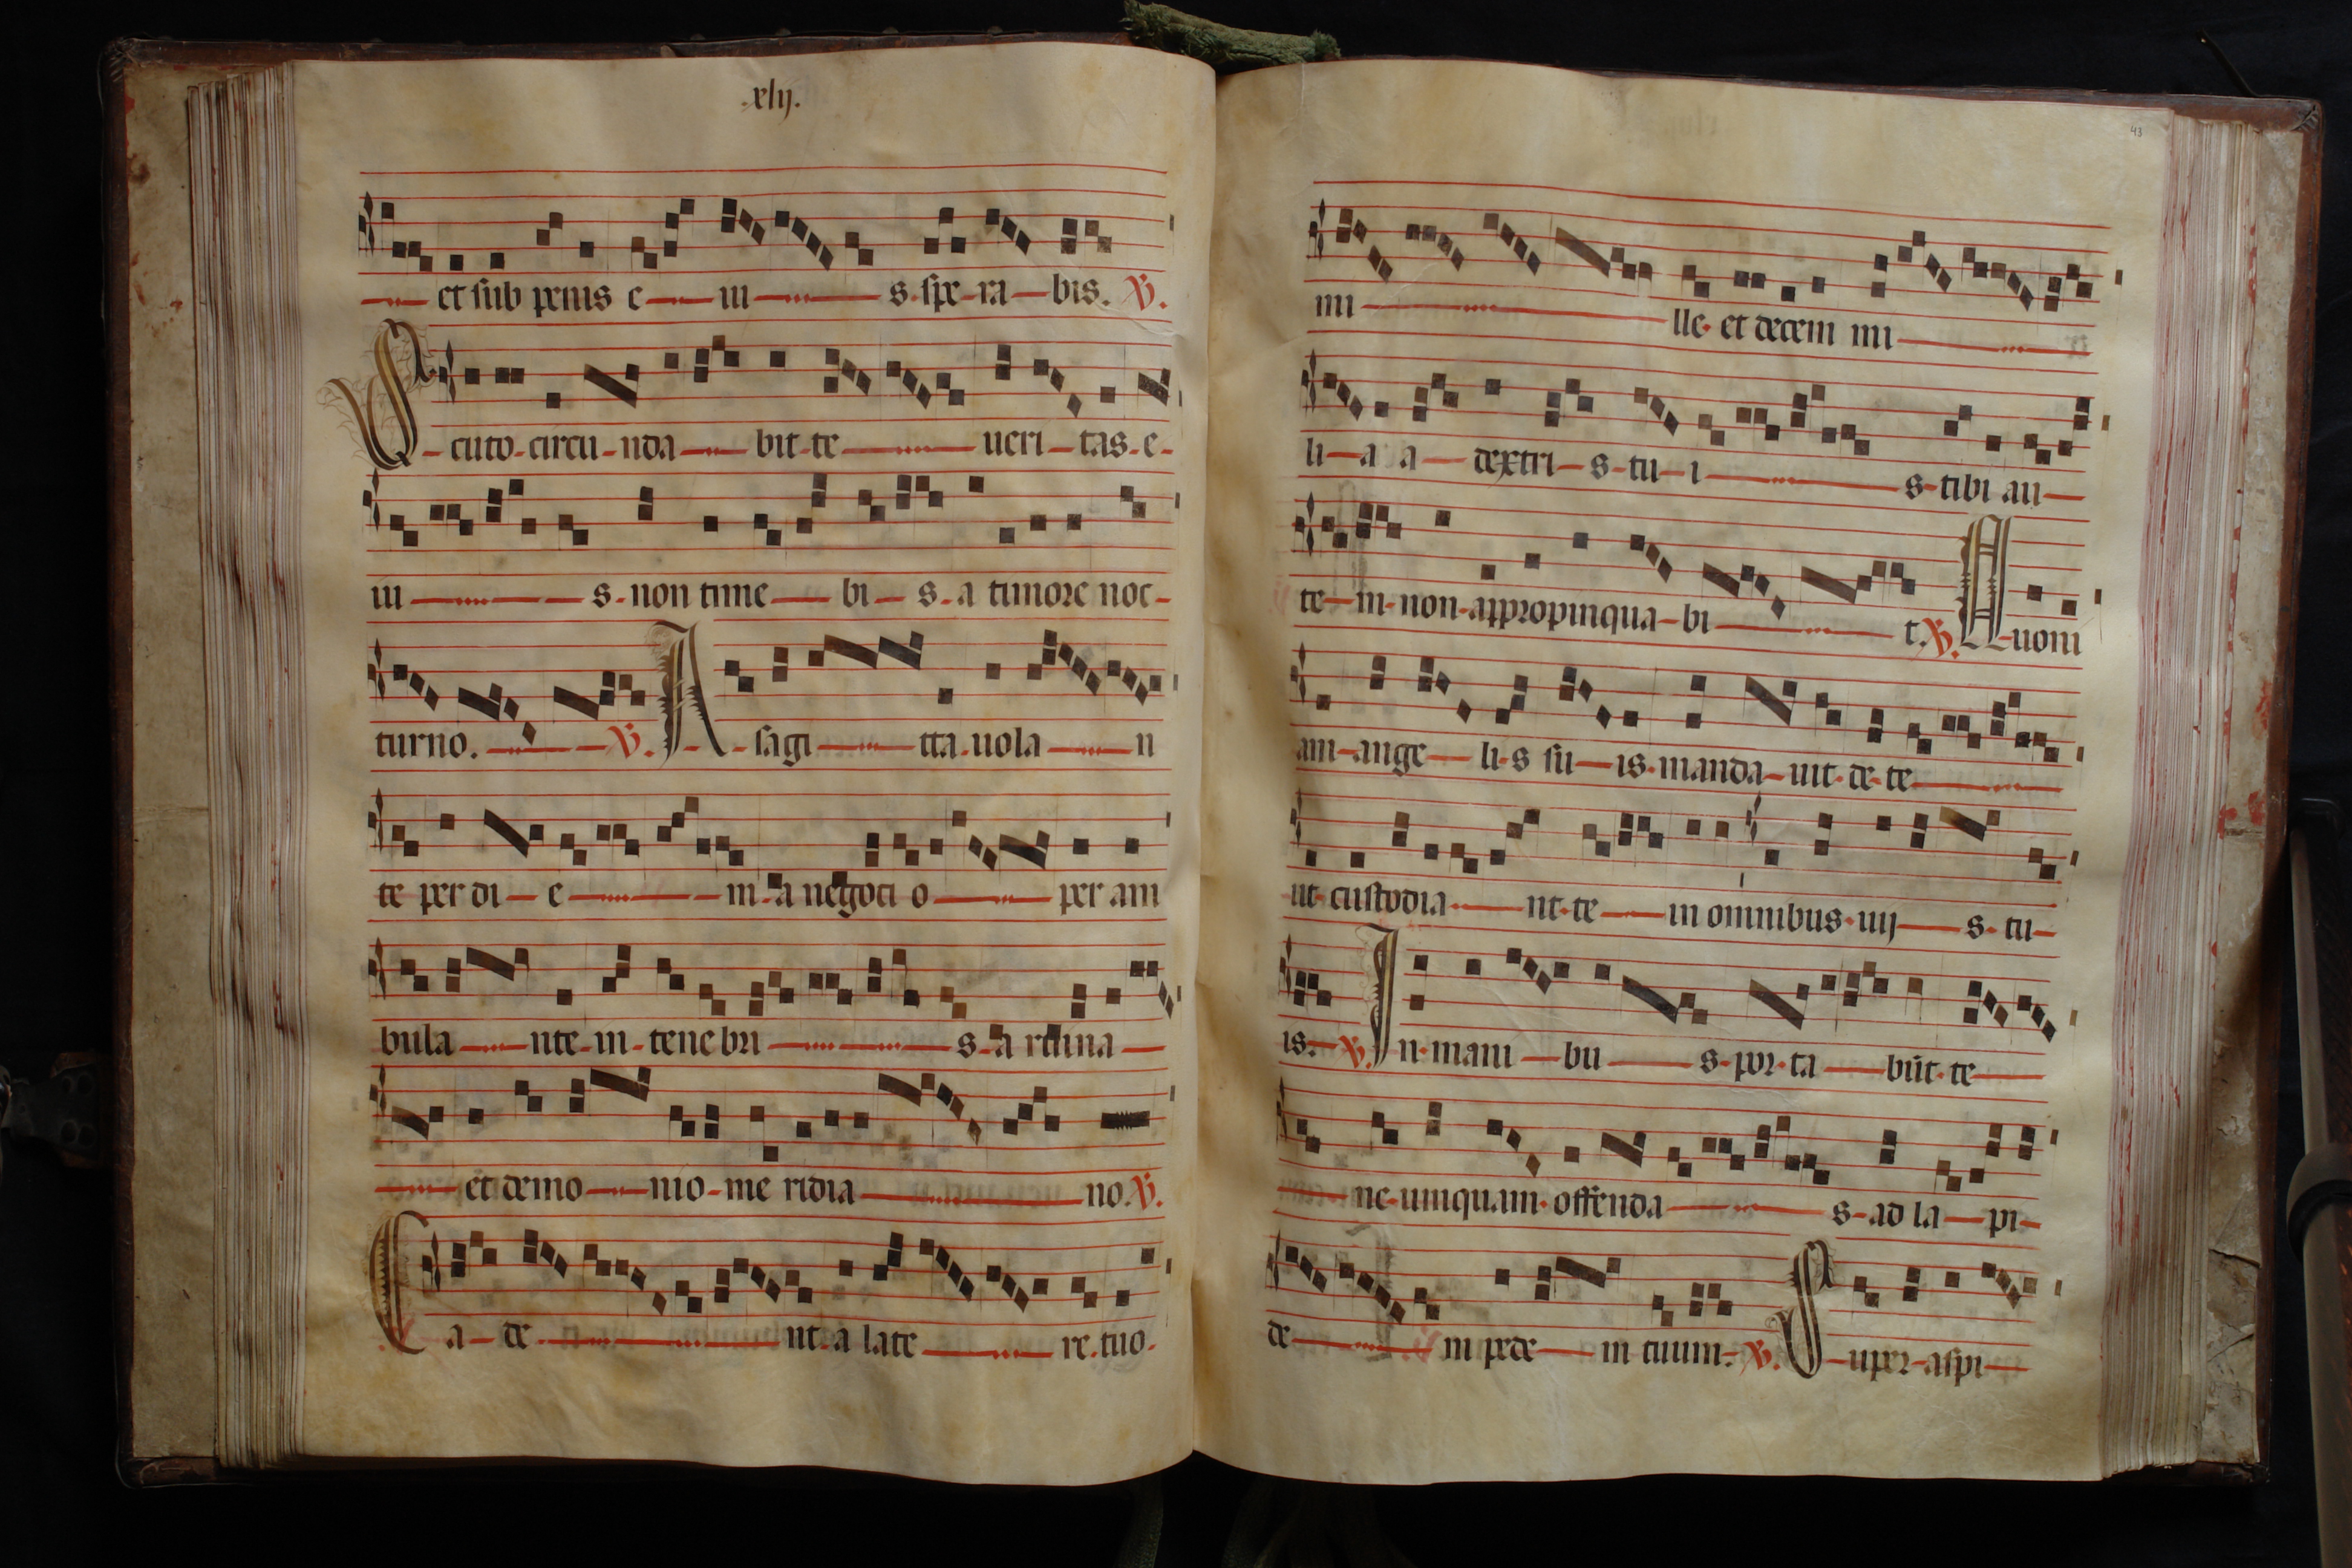 .xlij.
et sub penis e iu s spe ra bis. ℣.
S cuto circu nda bit te ueri tas e
iu s non time bi s a timore noc
turno. ℣. A sagi tta uola n
te per di e m a negoci o per am
bula nte in tenebri s a ruina
et demo nio me ridia no. ℣.
C a de nt a late re tuo
43
mi lle et decem mi
li a a dextri s tu i s tibi au
te m non appropinqua bi t. ℣. Q uoni
am ange li s su is manda uit de te
ut custodia nt te in omnibus uij s tu
is. ℣. I n mani bu s por ta būt te
ne umquam offenda s ad la pi
de m pede m tuum. ℣. S uper aspi